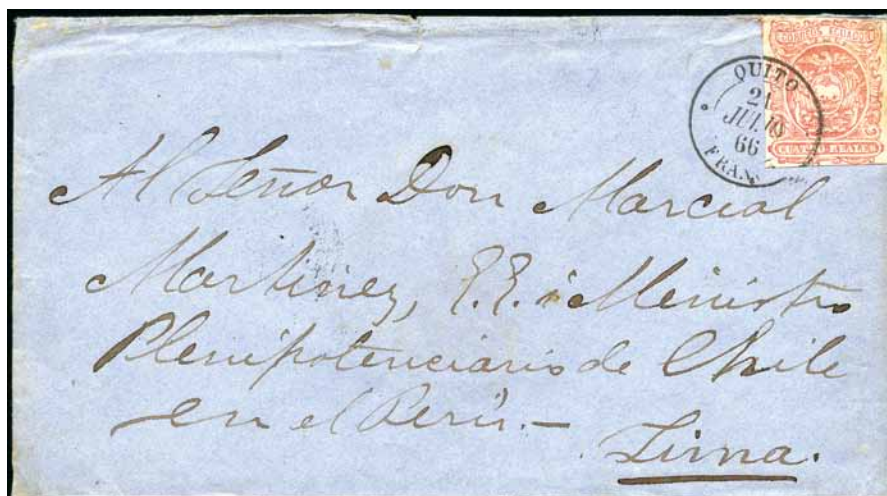 CORREOS ECUADOR
QUITO
21
JULIO
66
FRAN
CUATRO REALES
Al Señor Don Marcial
Martinez, E.E. i Ministro
Plenipotenciario de Chile
en el Perú.—
Lima.